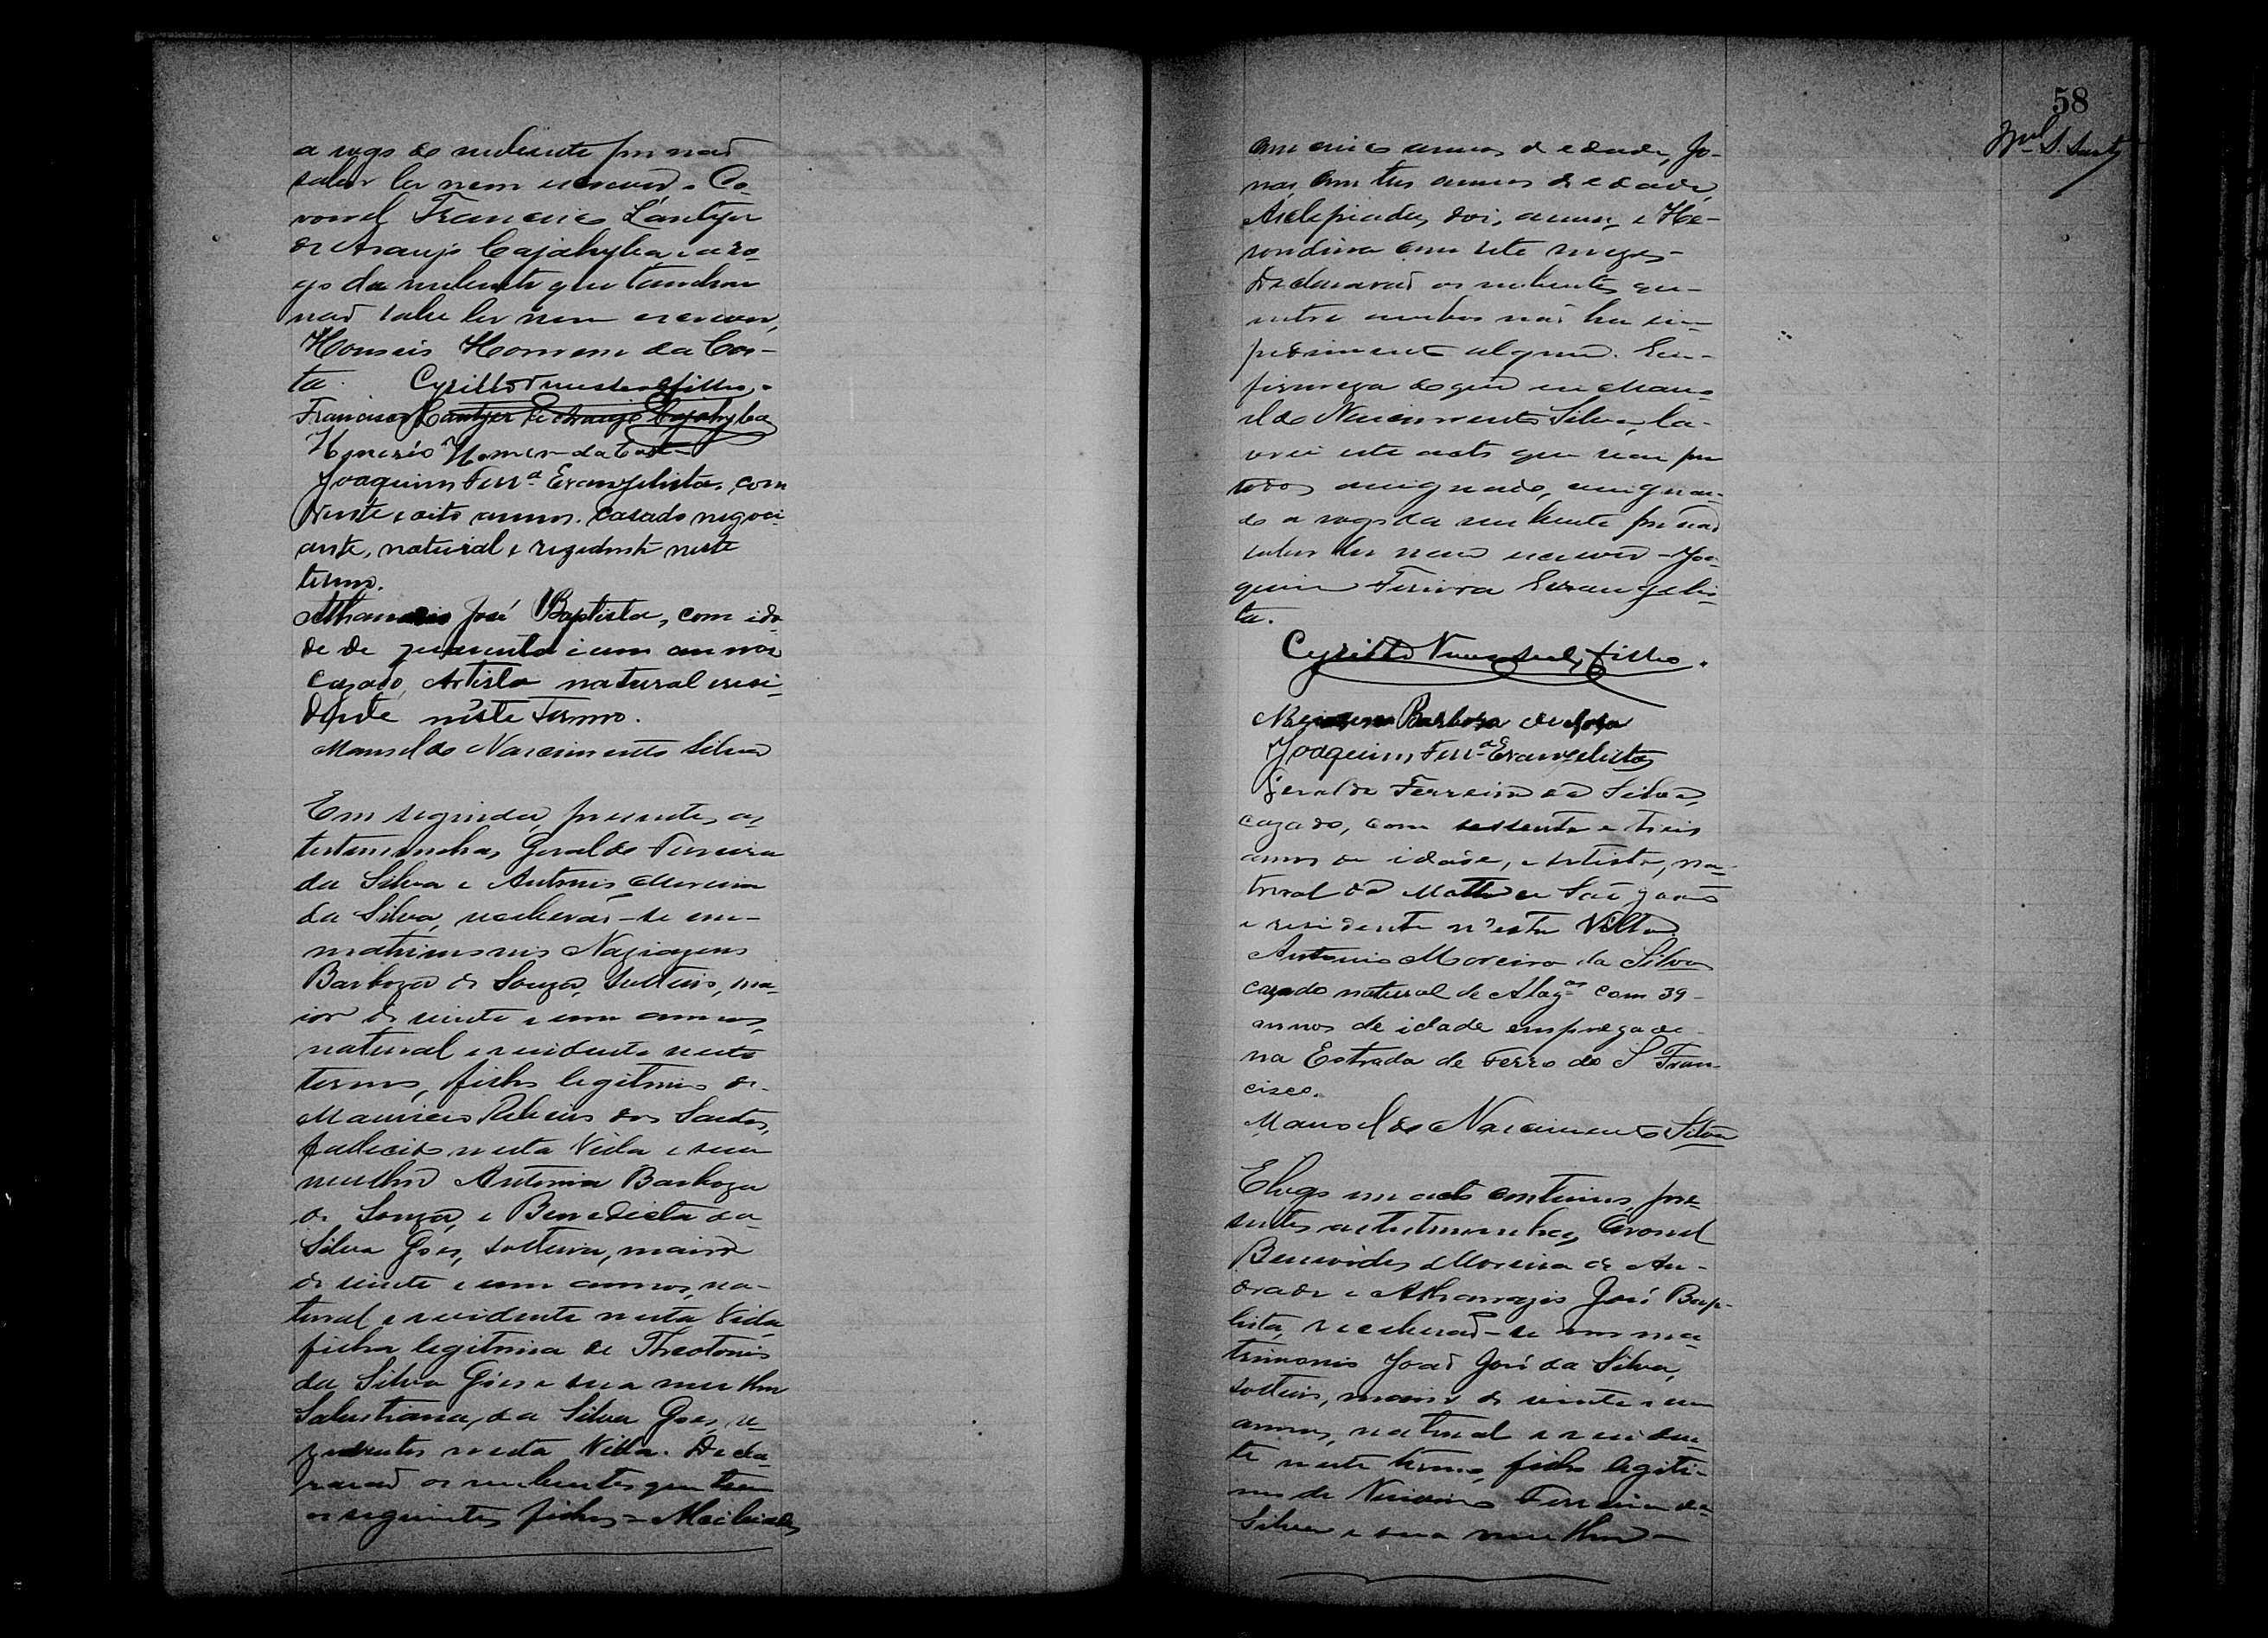 a rogo do nubente por não
saber ler nem escrever o Co-
ronel Francisco Lantyer
de Araujo Cajahyba, e a ro-
go da nubente que tambem
não sabe ler nem escrever,
Homem da Cos-
ta. Cyrillo Filho.
Francisco Lantyer de Araujo Cajahyba
Homem da Costa
Joaquim Ferrª Evangelista, com
vinte e oito annos. casado negoci-
ante, natural e rezidente neste
termo.
Athanazio José Baptista, com ida-
de de quarenta e um annos
cazado, Artista natural e resi-
dente nêste Termo.
Manoel do Nascimento Silva
Em seguida, presentes as
testemunhas, Geraldo Ferreira
da Silva e Antonio Moreira
da Silva, receberão-se em-
matrimonio Nazianzeno
Barboza de Souza, solteiro, ma-
ior de vinte e um annos,
natural e residente neste
termo, filho legitimo de
Mauricio Ribeiro dos Santos,
fallecido nesta Villa e sua
mulher Antonia Barboza
de Souza, e Benedicta da
Silva Goes, solteira, maior
de vinte e um annos, na-
tural e residente nesta Villa
filha legitima de Theotonio
da Silva Góes e sua mulher
Salustiana da Silva Goes, re-
zidentes nesta Villa. Decla-
rarão os nubentes que tem
os seguintes filhos = Alcibiades
58
com cinco annos de edade, Jo-
nas, com tres annos de edade,
Asclepiades, dois annos, e He-
rondina com sete mezes-
Declararão os nubentes que-
entre ambos não ha im-
pedimento algum. Em-
firmeza do que eu Mano-
el do Nascimento Silva, la-
vrei este acto que vae por
todos assignado, assignan-
do a rogo da nubente por não
saber ler nem escrever - Joa-
quim Ferreira Evangelis-
ta.
Cyrillo Filho.
Barboza de Soza
Joaquim Ferrª Evangelista
Geraldo Ferreira da Silva,
cazado, com sessenta e treis
annos de idade, artista, na-
tural da Matta de São João
e residente n'esta Villa.
Antonio Moreira da Silva
cazado natural de Alagᵒᵃˢ com 39-
annos de idade empregado
na Estrada de Ferro do S Fran-
cisco.
Manoel do Nascimento Silva
E logo em acto continuo, pre-
sentes as testemunhas, Coronel
Benevides Moreira de An-
drade e Athanazio José Bap-
tista, receberão-se em ma-
trimonio João José da Silva,
solteiro, maior de vinte e um
annos, natural e residen-
te neste termo, filho legiti-
mo de Ferreira da
Silva e sua mulher -